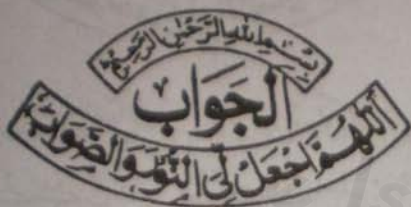 بسم الله الرحمن الرحيم
الجَوَاب
اللهُمَّ اجْعَلْ لِّي النُّوْرَ وَالصَّوَابَ